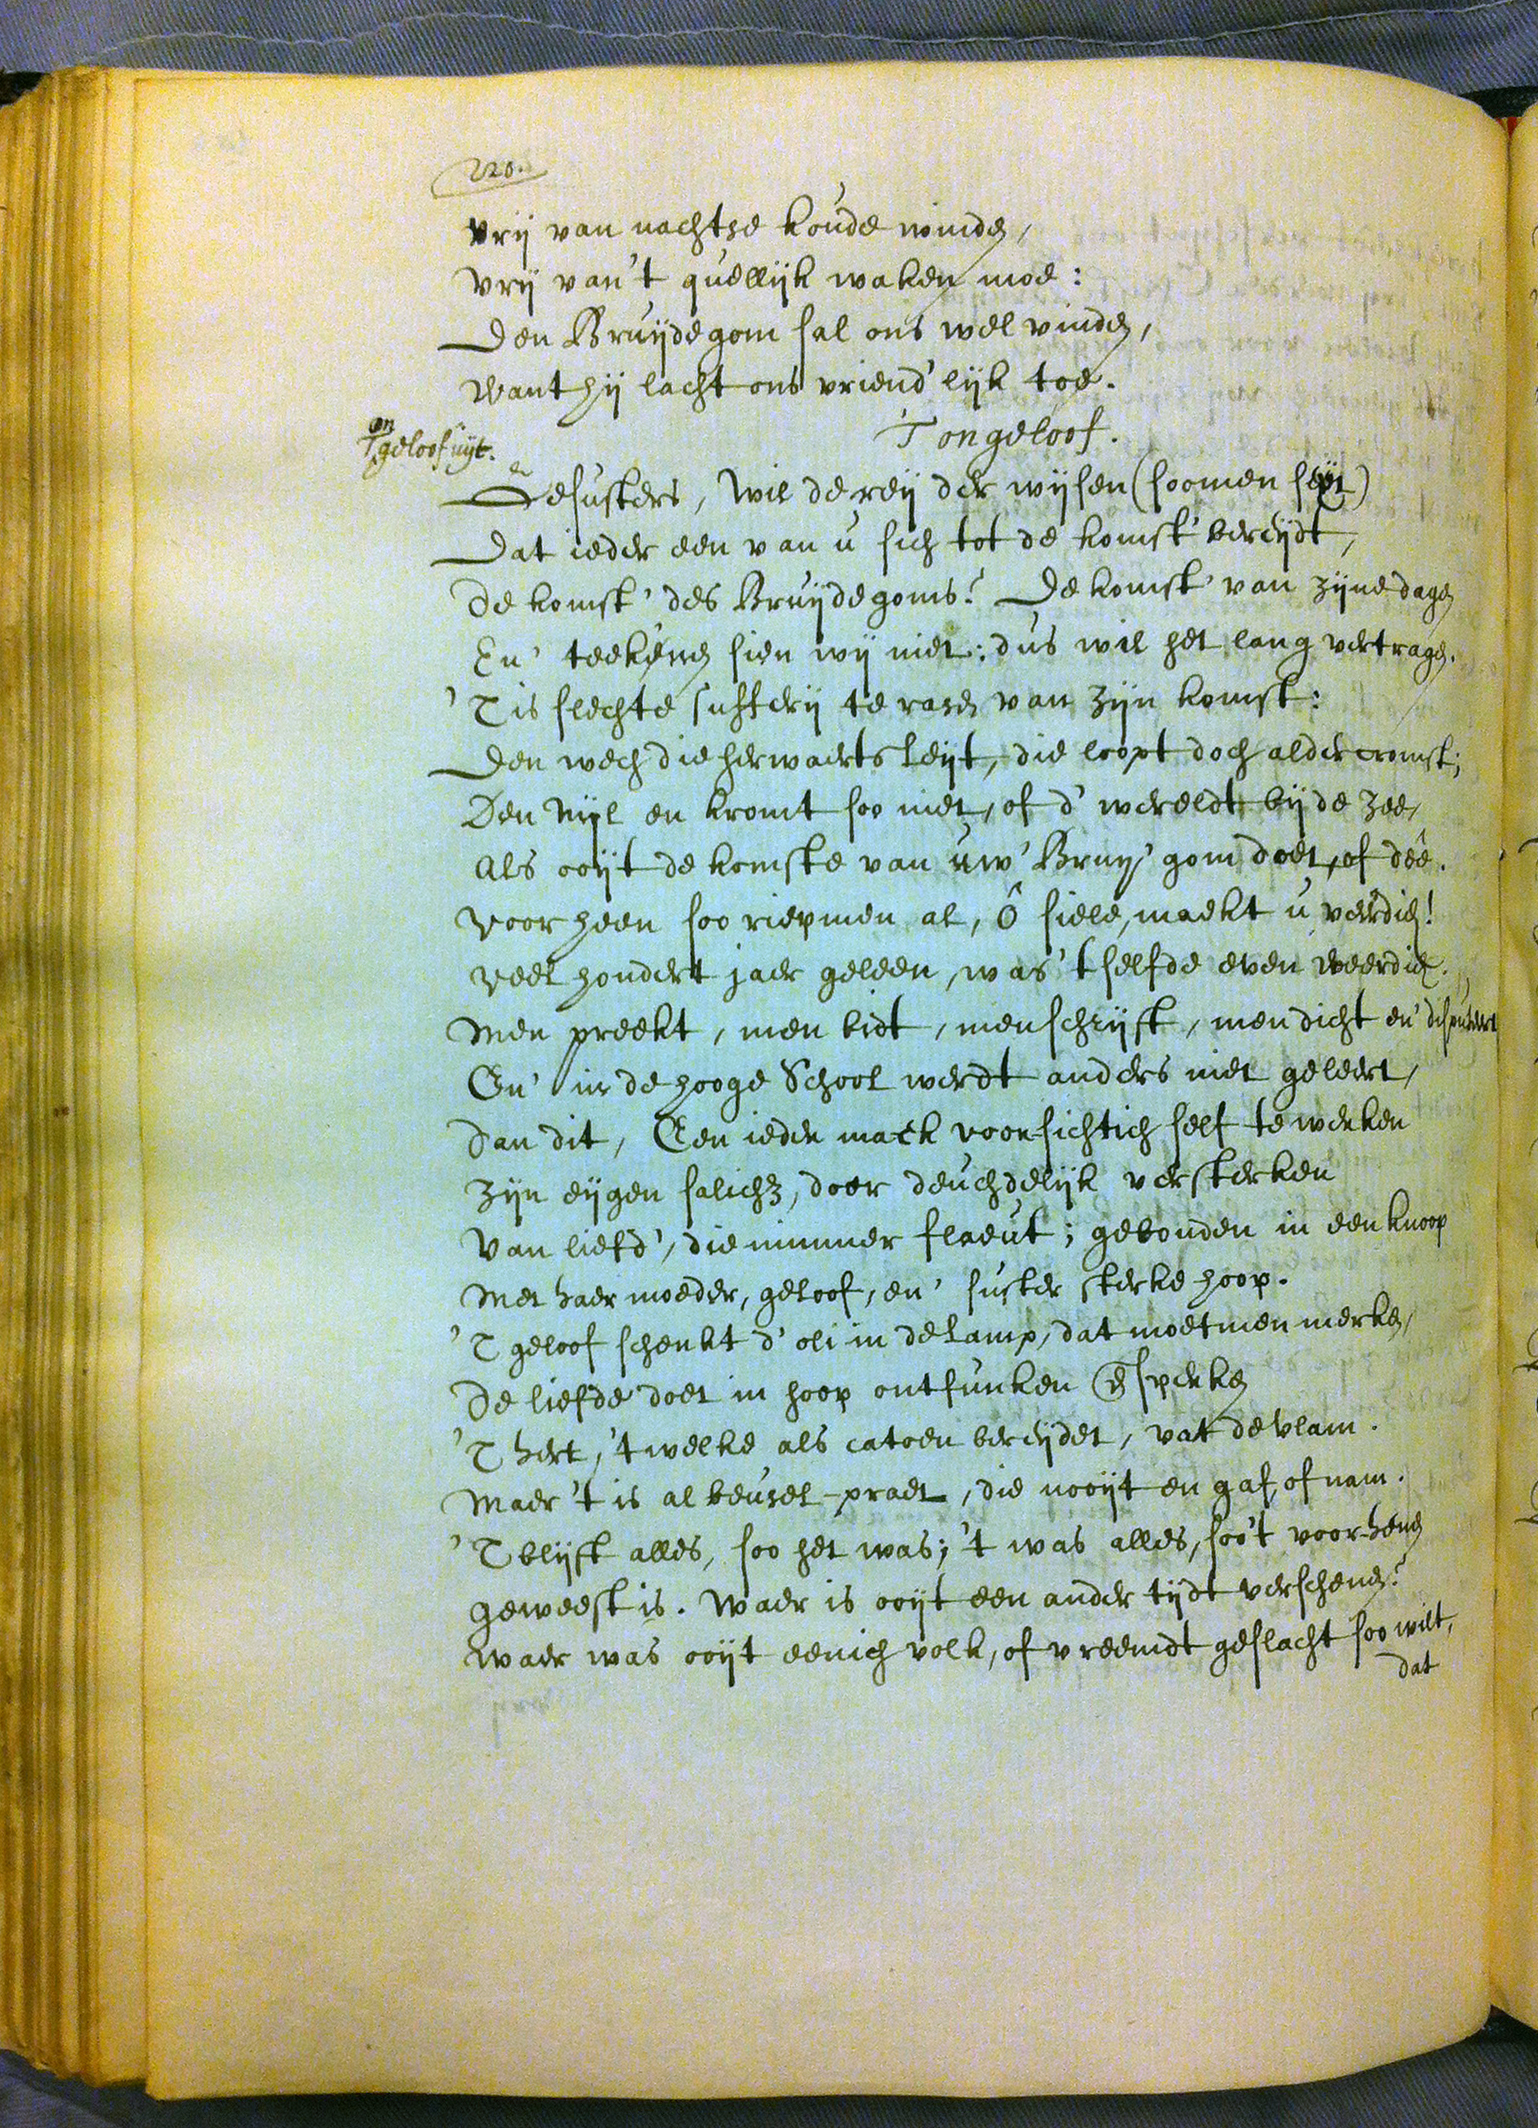 220.
Vrij van nachtse koude winden,
Vrij van't quellijk waken moe:
Den Bruijdegom sal ons wel vinden,
Want hij lacht ons vriend'lijk toe.
T ongeloof.
T ongeloof uijt.
Gesusters, wil de reij der wijsen (soomen seijt)
Dat ieder een van u sich tot de komst' bereijdt,
De komst' des Bruijdegoms? De komst' van zijne dagen
En' teekenen sien wij niet: dus wil het lang vertragen.
'T is slechte sufferij te rasen van zijn komst:
Den wech die herwaerts leijt, die loopt doch alder cromst;
Den Nijl en kromt soo niet, of d' wereldt bij de zee,
Als ooijt de komste van uw' Bruij'gom doet, of deê.
Voor heen soo riepmen al, ô siele, maekt u veerdich!
Veel hondert jaer geleen, was 't selfde even weerdich.
Men preekt, men bidt, men schrijft, men dicht en' disputeert
En' in de hooge School werdt anders niet geleert,
Dan dit, Een ieder maek voorsichtich self te werken
Zijn eijgen salich, door deuchdelijk versterken
Van liefd', die nimmer flaeut; gebonden in een knoop
Met haer moeder, geloof, en' suster sterke hoop.
'T geloof schenkt d' oli in de lamp, dat moetmen merken,
De liefde doet in hoop ontfunken en sperken
'T hert, 't welke als catoen bereijdet, vat de vlam.
Maer 't is al beusel-praet, die nooijt en gaf, of nam.
'T blijft alles, soo het was; 't was alles, soo't voor-henen
geweest is. Waer is ooijt een ander tijdt verschenen?
Waer was ooijt eenich volk, of vreemdt geslacht soo wilt,
dat